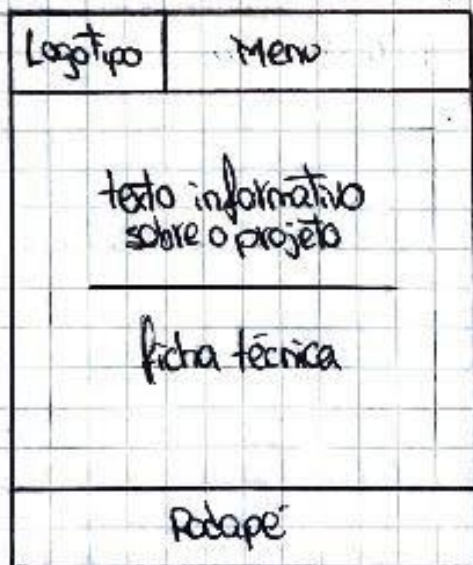 Logotipo
Menu
texto informativo
sobre o projeto
ficha técnica
Rodapé